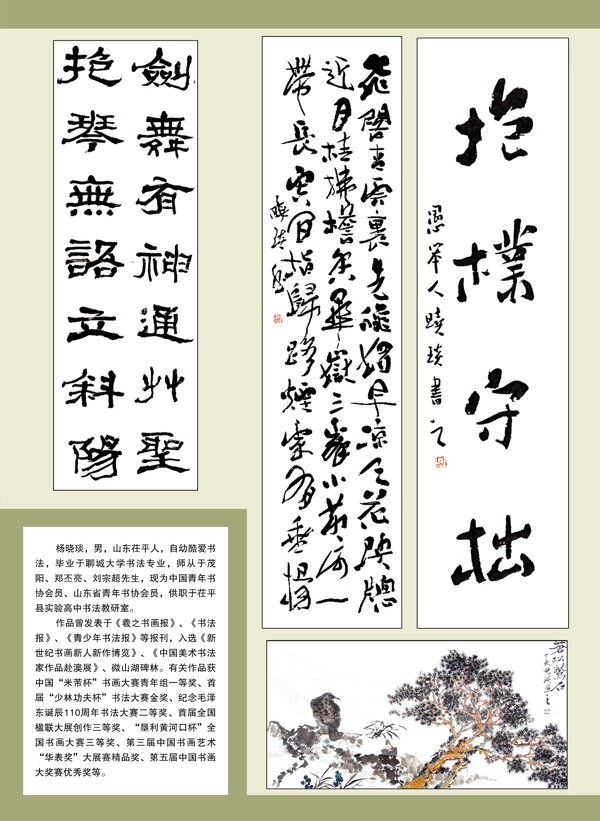 劍舞有神通艸聖
抱琴無語立斜陽
飛閣青雲裏先秋獨早涼天花映牕
近月桂拂檐香華嶽三峰小黃河一
帶長空間指歸路煙有垂楊
曉琰書
抱樸守拙
人曉琰書之
杨晓琰，男，山东茌平人，自幼酷爱书
法，毕业于聊城大学书法专业，师从于茂
阳、郑丕亮、刘宗超先生，现为中国青年书
协会员、山东省青年书协会员，供职于茌平
县实验高中书法教研室。
作品曾发表于《羲之书画报》、《书法
报》、《青少年书法报》等报刊，入选《新
世纪书画新人新作博览》、《中国美术书法
家作品赴澳展》、微山湖碑林。有关作品获
中国“米芾杯”书画大赛青年组一等奖、首
届“少林功夫杯”书法大赛金奖、纪念毛泽
东诞辰110周年书法大赛二等奖、首届全国
楹联大展创作三等奖、“垦利黄河口杯”全
国书画大赛三等奖、第三届中国书画艺术
“华表奖”大展赛精品奖、第五届中国书画
大奖赛优秀奖等。